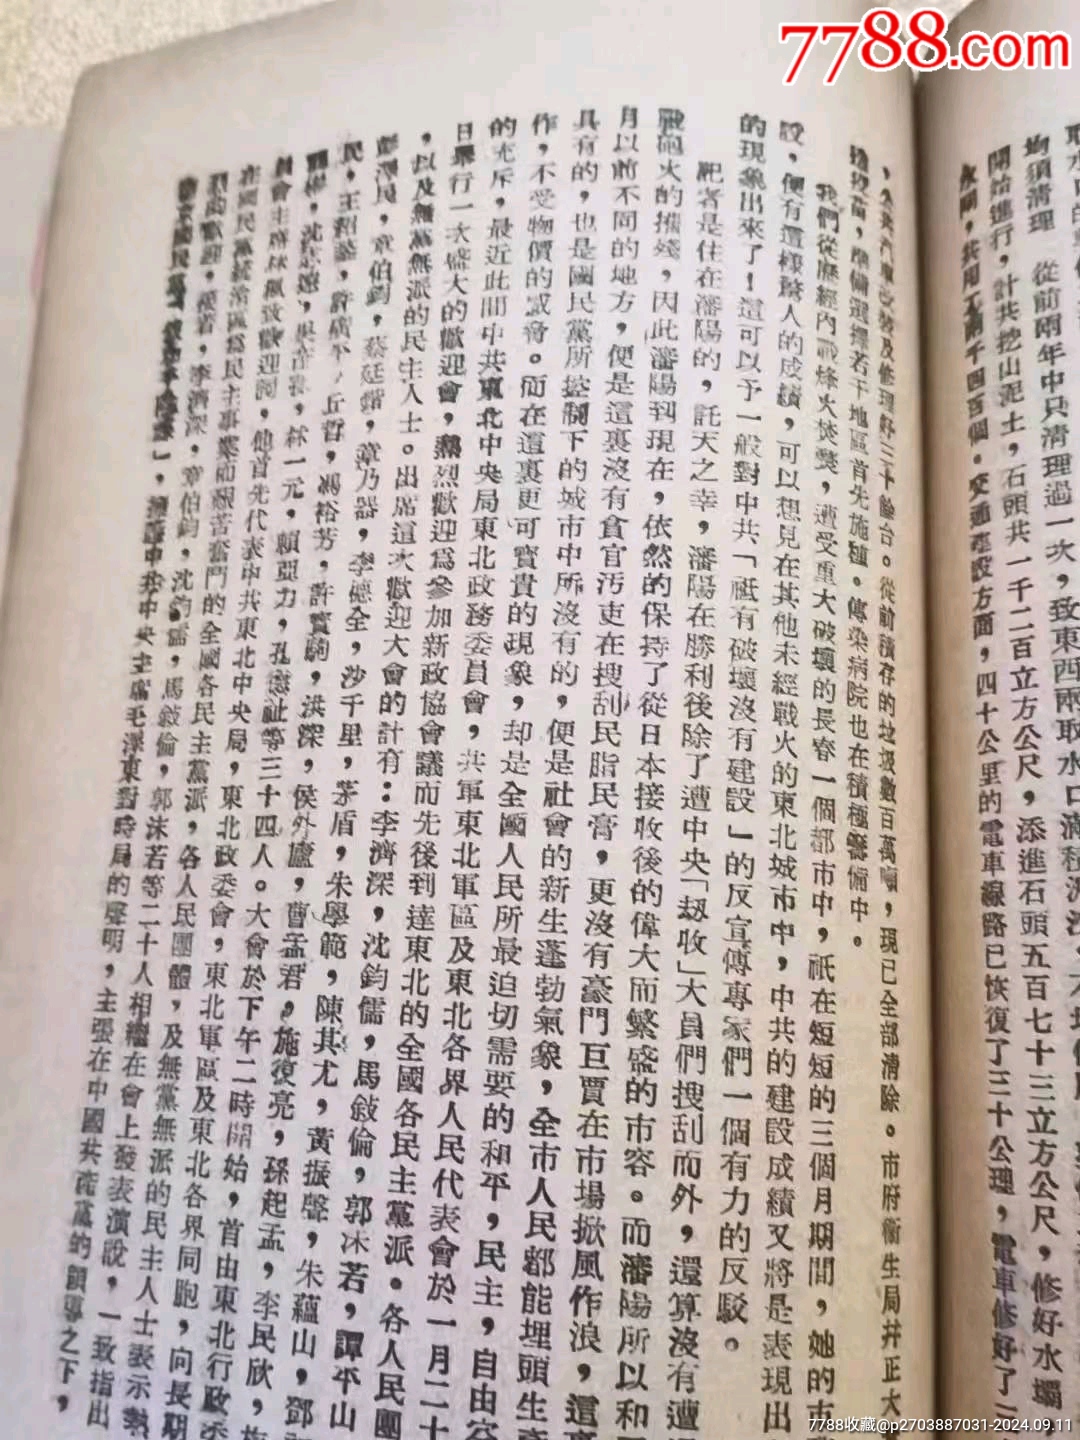 7788.com
取水口滿積泥沙
均須清理 從前兩年中只清理過一次，致東西兩
開始進行，計共挖山泥土，石頭共一千二百立方公尺，添進石頭五百七十三立方公尺，修好水壩
水閘，共用工兩千四百個。交通建設方面，四十公里的電車線路已恢復了三十公理，電車修好了二
及修理好三十餘台。從前積存的垃圾數百萬噸，現已全部清除。市府衛生局并正大
，準備選擇若干地區首先施種。傳染病院也在積極籌備中。
我們從歷經內戰烽火焚燬，遭受重大破壞的長春一個都市中，祇在短短的三個月期間，她的市
設，便有這樣驚人的成績，可以想見在其他未經戰火的東北城市中，中共的建設成績又將是表現出
的現象出來了！這可以予一般對中共「祇有破壞沒有建設」的反宣傳專家們一個有力的反駁。
記者是住在瀋陽的，託天之幸，瀋陽在勝利後除了遭中央「刼收」大員們搜刮而外，還算沒有遭
戰砲火的摧殘，因此瀋陽到現在，依然的保持了從日本接收後的偉大而繁盛的市容。而瀋陽所以和
月以前不同的地方，便是這裏沒有貪官汚吏在搜刮民脂民膏，更沒有豪門巨賈在市場掀風作浪，這
具有的，也是國民黨所控制下的城市中所沒有的，便是社會的新生蓬勃氣象，全市人民都能埋頭生
作，不受物價的威脅。而在這裏更可寶貴的現象，却是全國人民所最迫切需要的和平，民主，自由空
的充斥，最近此間中共東北中央局東北政務委員會，共軍東北軍區及東北各界人民代表會於一月二十
日舉行一次盛大的歡迎會，熱烈歡迎爲參加新政協會議而先後到達東北的全國各民主黨派。各人民團
，以及無黨無派的民主人士。出席這次歡迎大會的計有：李濟深，沈鈞儒，馬敍倫，郭沫若，譚平山
彭澤民，章伯鈞，蔡廷鍇，章乃器，李德全，沙千里，茅盾，朱學範，陳其尤，黃振聲，朱蘊山，鄧
民，王紹鏊，許廣平，丘哲，馮裕芳，許寶駒，洪深，侯外廬，曹孟君，施復亮，孫起孟，李民欣，梅
沈志遠，吳茂蓀，林一元，賴亞力，孔德沚等三十四人。大會於下午二時開始，首由東北行政委
員會主席林楓致歡迎詞，他首先代表中共東北中央局，東北政委會，東北軍區及東北各界同胞，向長期
在國民黨統治區爲民主事業而艱苦奮鬥的全國各民主黨派，各人民團體，及無黨無派的民主人士表示熱
歡迎，接着，李濟深，章伯鈞，沈鈞儒，馬敍倫，郭沫若等二十人相繼在會上發表演說，一致指出
」，擁護中共中央主席毛澤東對時局的聲明，主張在中國共產黨的領導之下，
7788收藏@p2703887031-2024.09.11